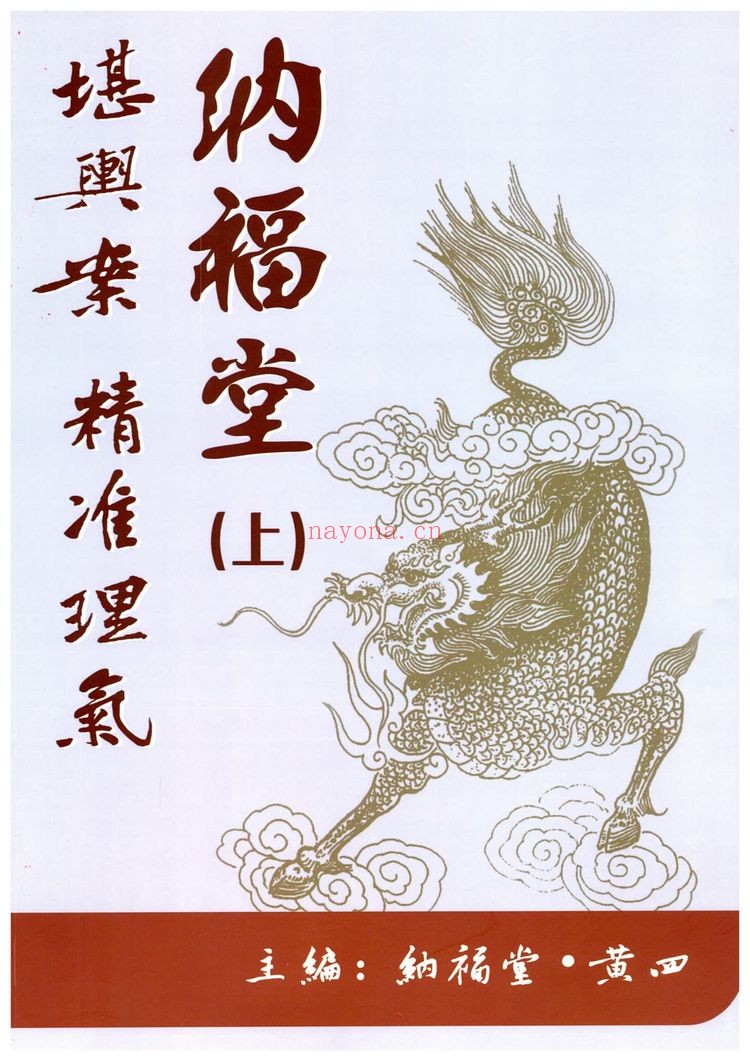 纳福堂(上)
堪輿案 精准理氣
nayona.cn
主編：納福堂·黄四